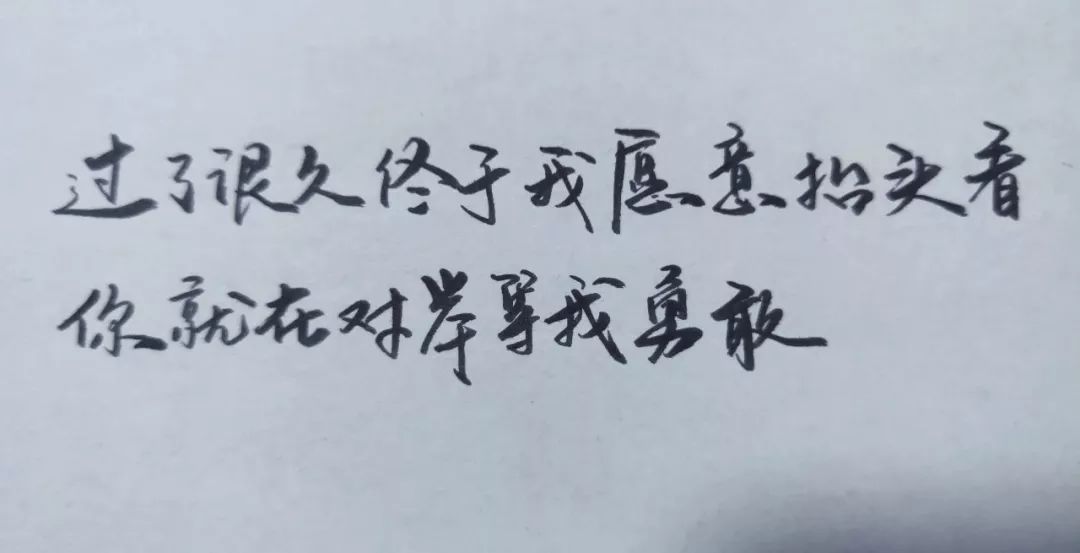 过了很久终于我愿意抬头看
你就在对岸等我勇敢